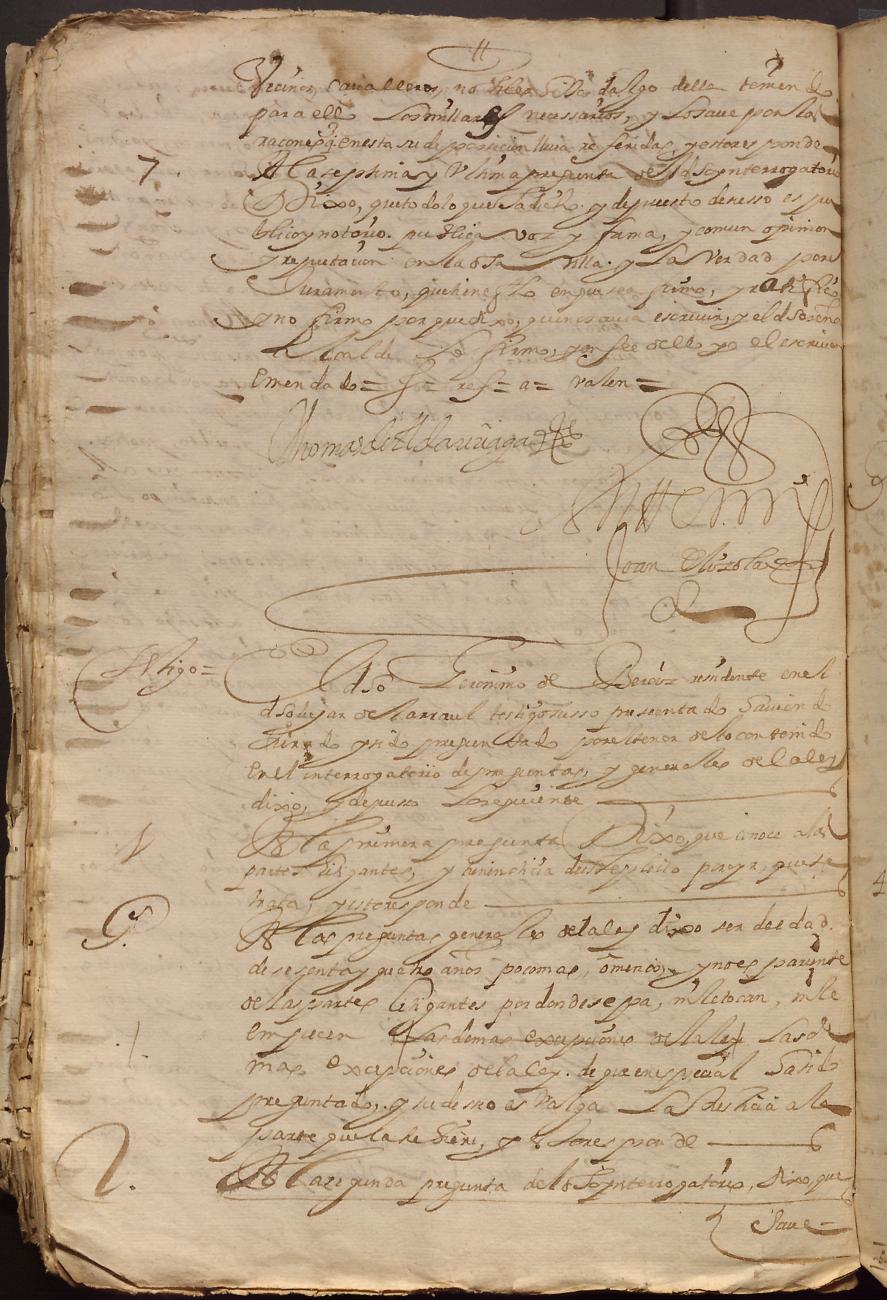 Vecinos, cavalleros, no hijos dalgo della teniendo
para ello Los millares necessarios, y Lo save por las
racones q en esta su deposicion lleva referidas, y esto responde
7 A la septima y Ultima pregunta del dho ynterrogatorio
Dixo, que todo lo que ha dicho y depuesto desusso es pu
blico y notorio publica voz y fama, y comun opinion
y reputacion en la dha Villa y La Verdad por el
Juramento, que hiene fho en que se afirmo, y ratifico
y no firmo por que dixo, que no savia escrivir, y el dho señor
Alcalde Lo firmo, y en fee dello yo el escrivano
Emendado = = ref = a = Valen =
Thomas de Aldarviaga
Ante mi
Joan de Elizola
Testigo =
El dho Geronimo de Beroiz residente en el
dho lugar de Larraul testigo susso presentado haviendo
Jurado y sido preguntado por el tenor de lo contenido
En el interrogatorio de preguntas, y generales de la ley
dixo, y depuso Lo siguiente
1 A la primera pregunta Dixo, que conoce a las
partes litigantes, y tiene noticia deste pleito porque, que se
trata, y esto responde
G. A las preguntas generales de la ley dixo ser de edad
de sesenta y quatro años poco mas, o menos, y no es pariente
de las partes Litigantes por donde sepa, ni le tocan, ni le
empecen Las demas excepciones de la ley Las de
mas excepciones de la ley de que en especial ha sido
preguntado, y su desseo es valga La Justicia a la
parte que la tubiere, y esto responde
2. A la segunda pregunta del dho ynterrogatorio, Dixo, que
Save =